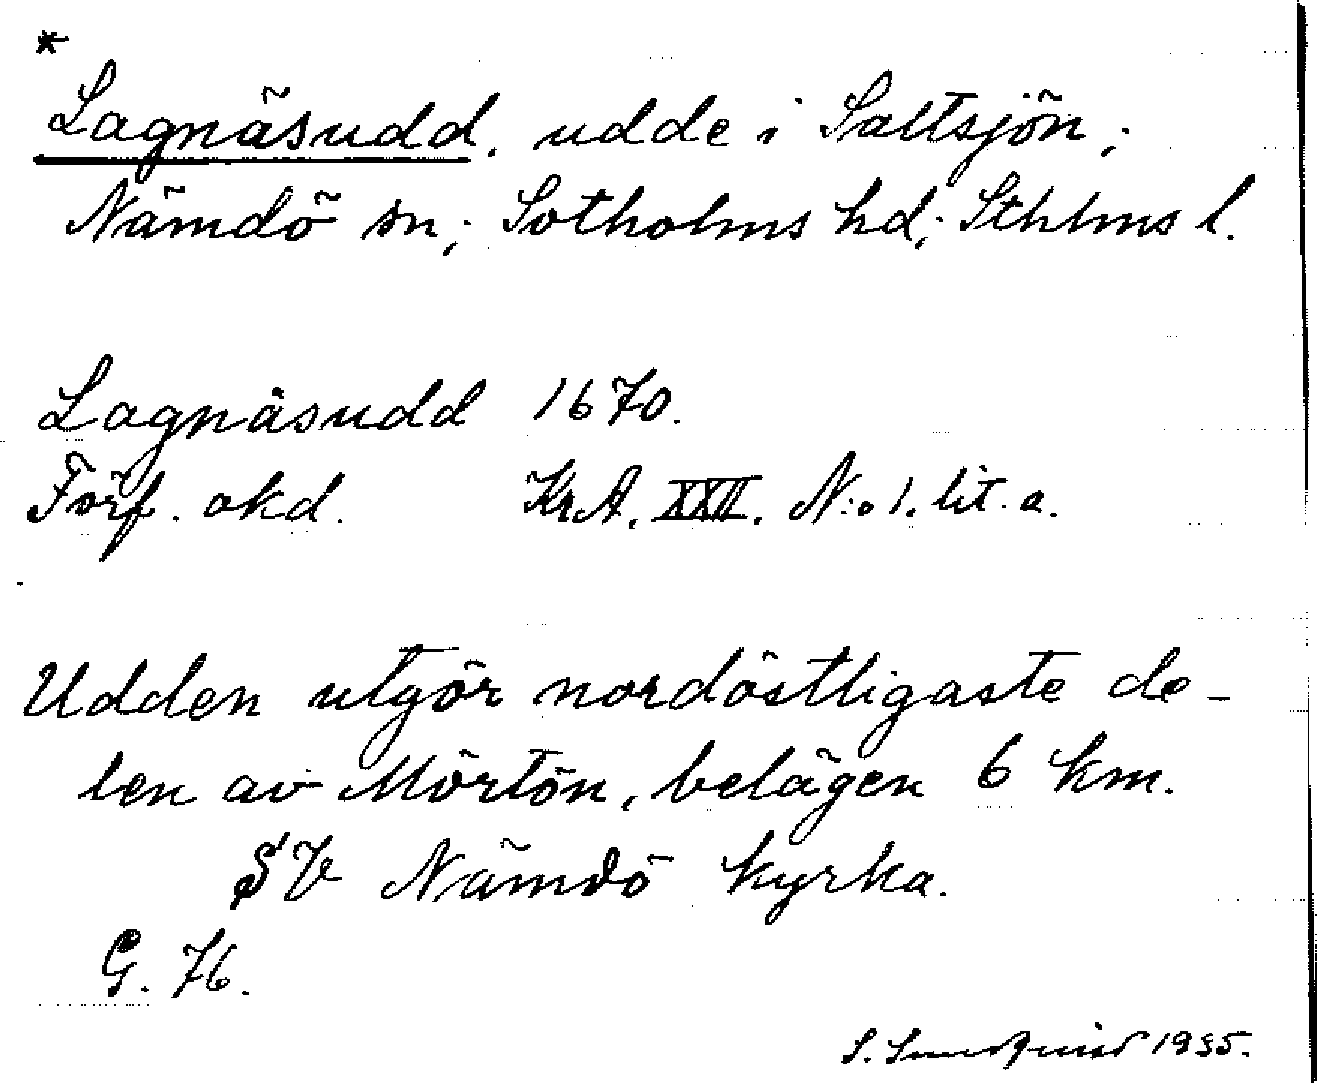 *
Lagnäsudd. udde i Saltsjön;
Nämdö sn; Sotholms hd; Sthlms l.
Lagnäsudd 1670.
Förf. okd. KrA. XXII. N:o 1. lit. a.
Udden utgör nordöstligaste de-
len av Mörtön, belägen 6 km.
SV Nämdö kyrka.
G. 76.
S. Sundqvist 1935.